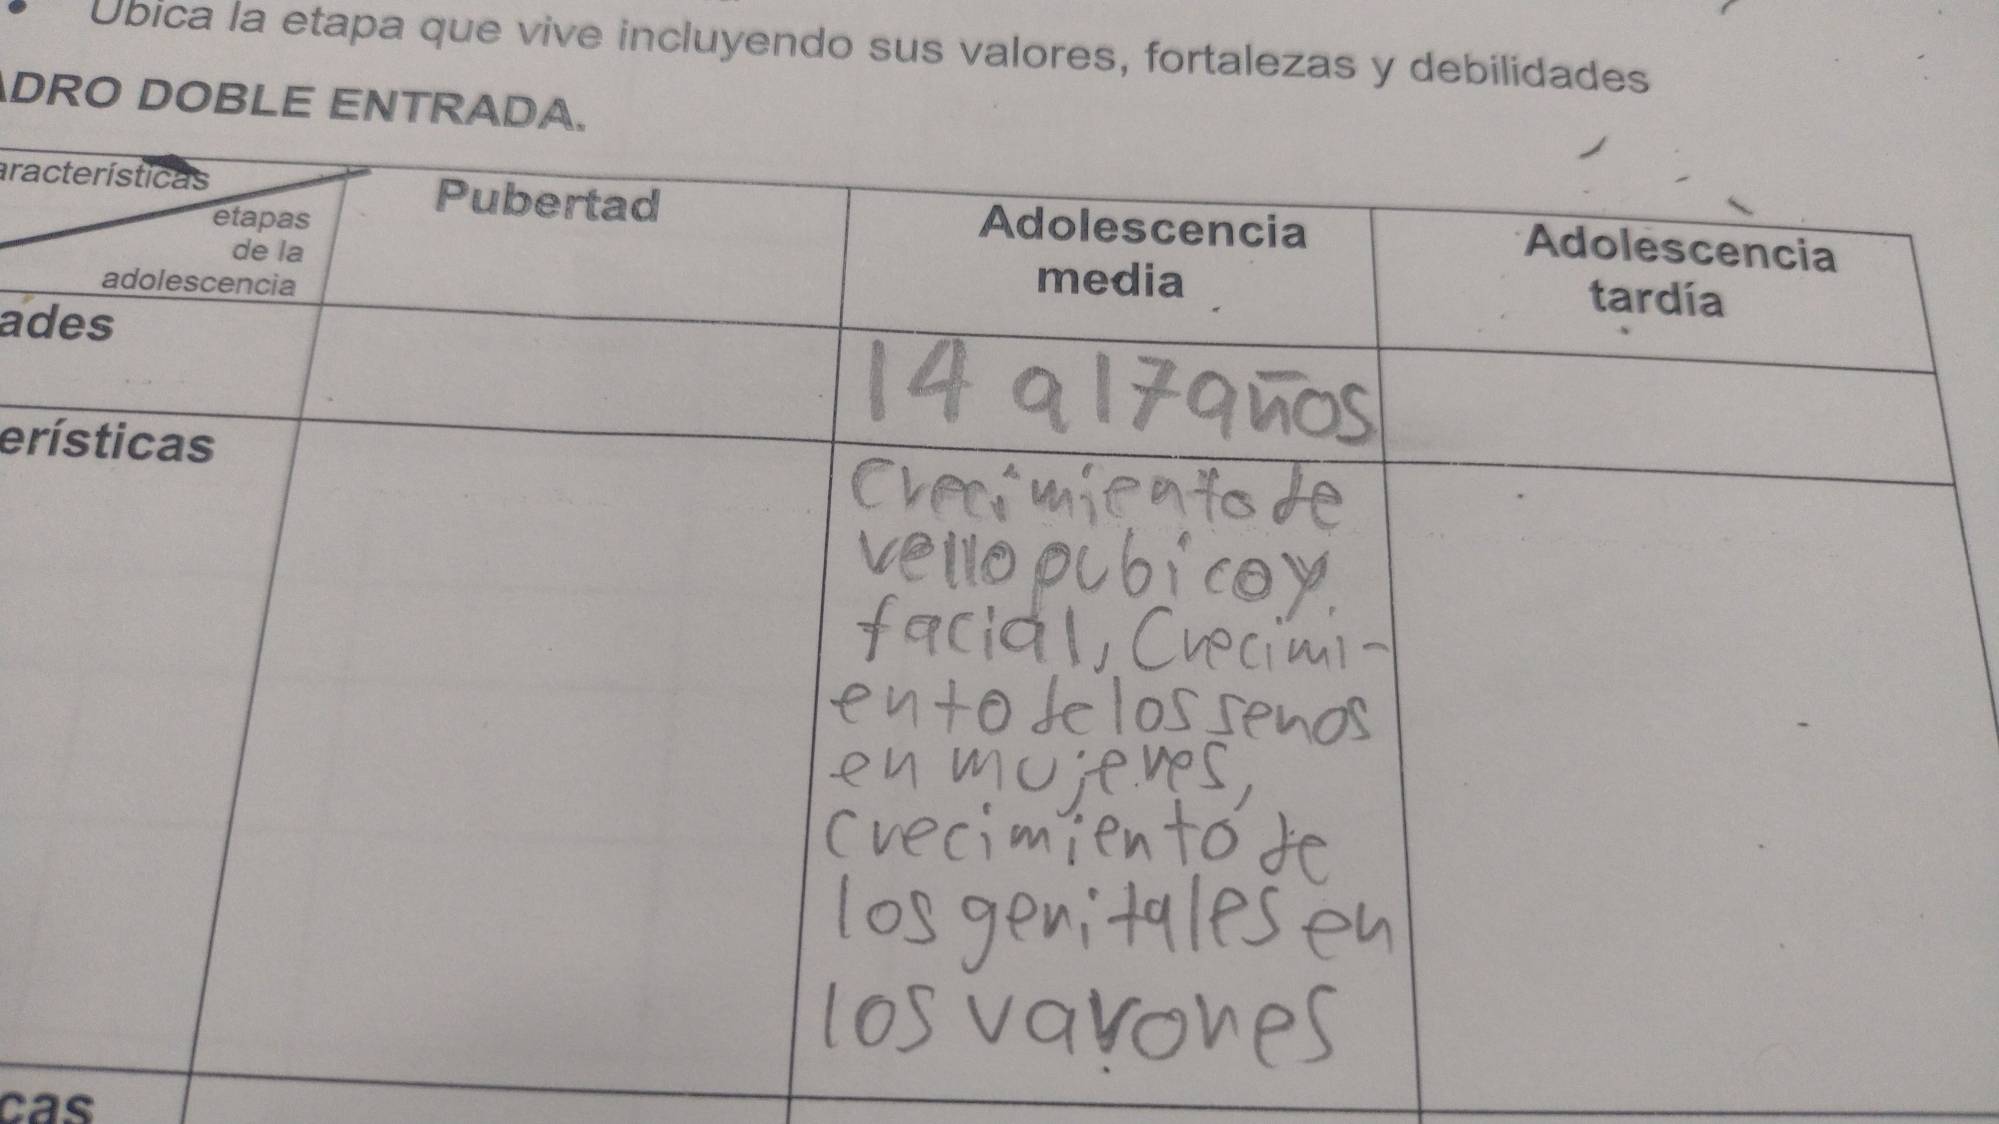 Ubica la etapa que vive incluyendo sus valores, fortalezas y debilidades
ADRO DOBLE ENTRADA.
aracterísticas
etapas
de la
adolescencia
Pubertad
Adolescencia
media
Adolescencia
tardía
ades
14 a 17 años
erísticas
Crecimiento de
vello pubico y
facial, Crecimi-
ento de los senos
en mujeres,
crecimiento de
los genitales en
los varones
cas